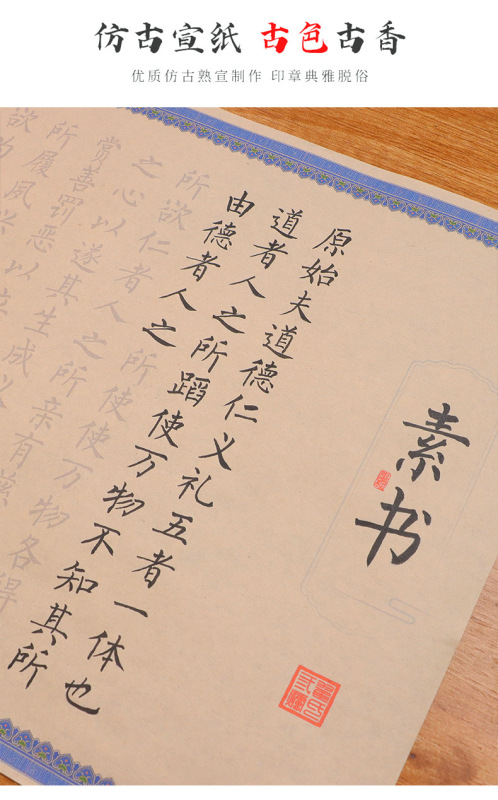 仿古宣纸 古色古香
优质仿古熟宣制作 印章典雅脱俗
素书
原始夫道德仁义礼五者一体也
道者人之所蹈使万物不知其所
由德者人之所使使万物各得
所欲仁者人之所亲有慈
之心以遂其生成义
赏善罚恶以立
所履夙兴